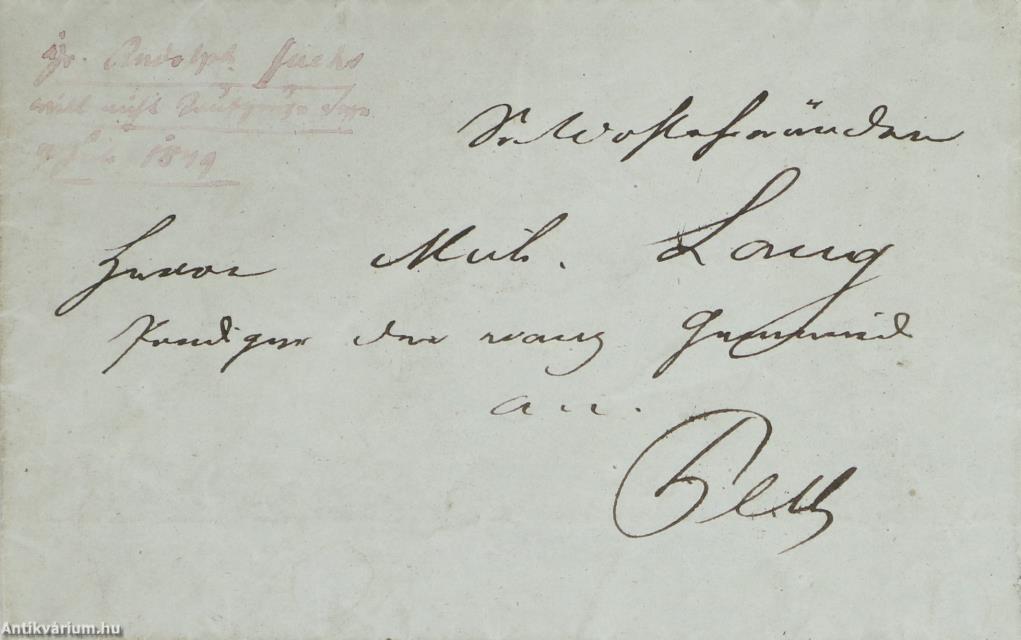 Rudolph Fuchs
will nicht
1849
Sr Wohlehrwürden
Herrn Mich. Lang
Prediger der evang Gemeinde
an.
Pesth
Antikvárium.hu